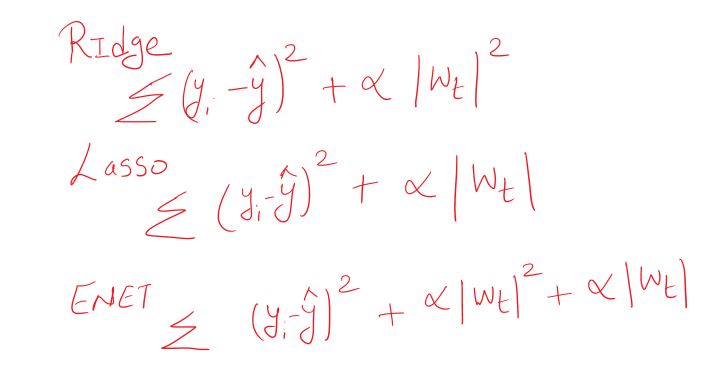 RIdge
Σ (yᵢ - ŷ)² + α |Wt|²
Lasso
Σ (yᵢ - ŷ)² + α |Wt|
ENET
Σ (yᵢ - ŷ)² + α|Wt|² + α|Wt|